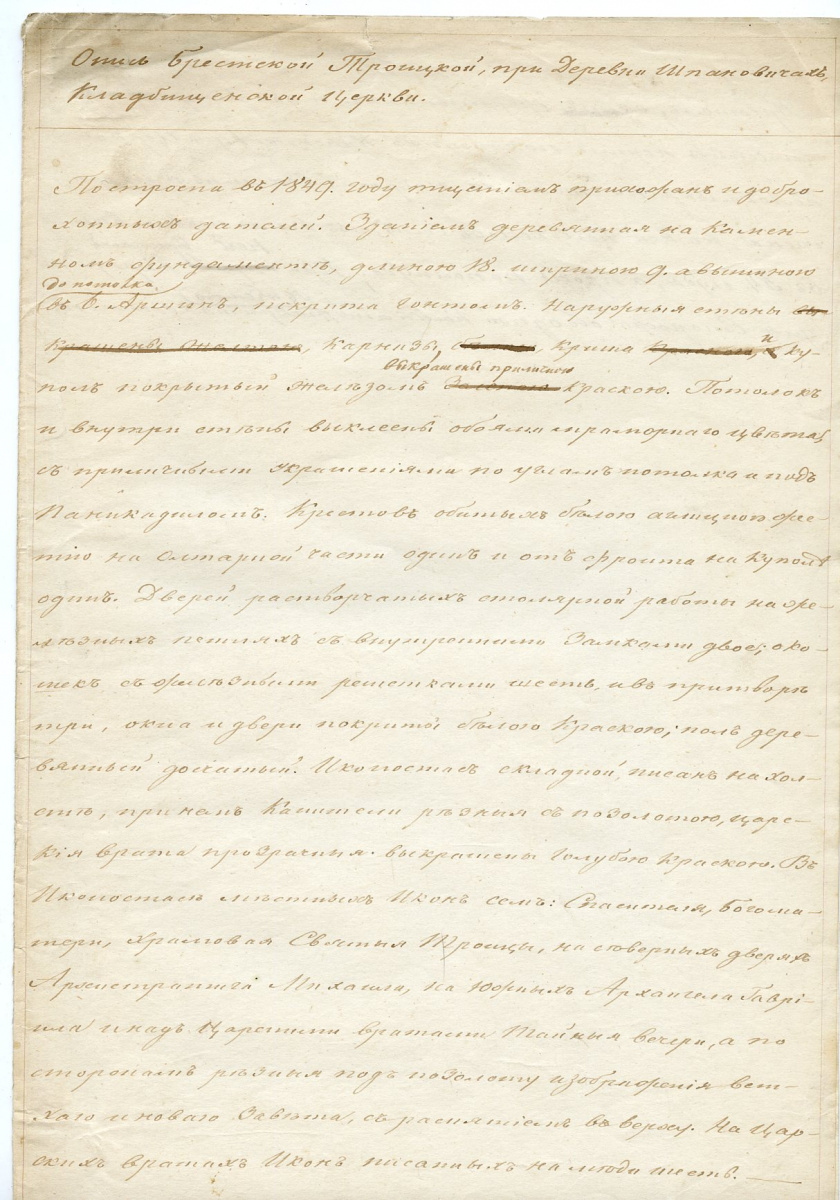 Опись Брестской Троицкой, при Деревни Шпановичахъ,
Кладбищенской Церкви.
Построена въ 1849. году тщаніемъ прихожанъ и добро-
хотныхъ дателей. Зданіемъ деревянная на Камен-
номъ фундаментѣ, длиною 18. шириною 9. а вышиною
до потолка
въ 6. Аршинъ, покрыта гонтомъ. Наружныя стѣны вы
крашены желтою, Карнизы, белою, крыша Красною, и ку-
выкрашены приличною
полъ покрытый желѣзомъ Зеленою краскою. Потолокъ
и внутри стѣны выклеены обоями мраморнаго цвѣта,
съ приличными украшеніями по угламъ потолка и подъ
Паникадиломъ. Крестовъ обитыхъ бѣлою аглицкою же-
стію на Олтарной части одинъ и отъ фронта на Куполѣ
одинъ. Дверей растворчатыхъ столярной работы на же-
лѣзныхъ петляхъ съ внутренними Замками двое; око-
шекъ съ желѣзными решетками шесть, и въ притворѣ
три, окна и двери покрыты бѣлою Краскою; полъ дере-
вянный досчатый. Иконостасъ складной, писанъ на хол-
стѣ, при немъ Капители рѣзныя съ позолотою, царс-
кія врата прозрачныя выкрашены голубою краскою. Въ
Иконостасѣ мѣстныхъ Иконъ семь: Спасителя, Богома-
тери, храмовая Святыя Троицы, на северныхъ дверяхъ
Архистратига Михаила, на южныхъ Архангела Гаврі-
ила и надъ Царскими вратами Тайныя вечери, а по
сторонамъ рѣзныя подъ позолоту изображенія вет-
хаго и новаго Завѣта, съ распятіемъ въ верху. На Цар-
скихъ вратахъ Иконъ писанныхъ на меди шесть.